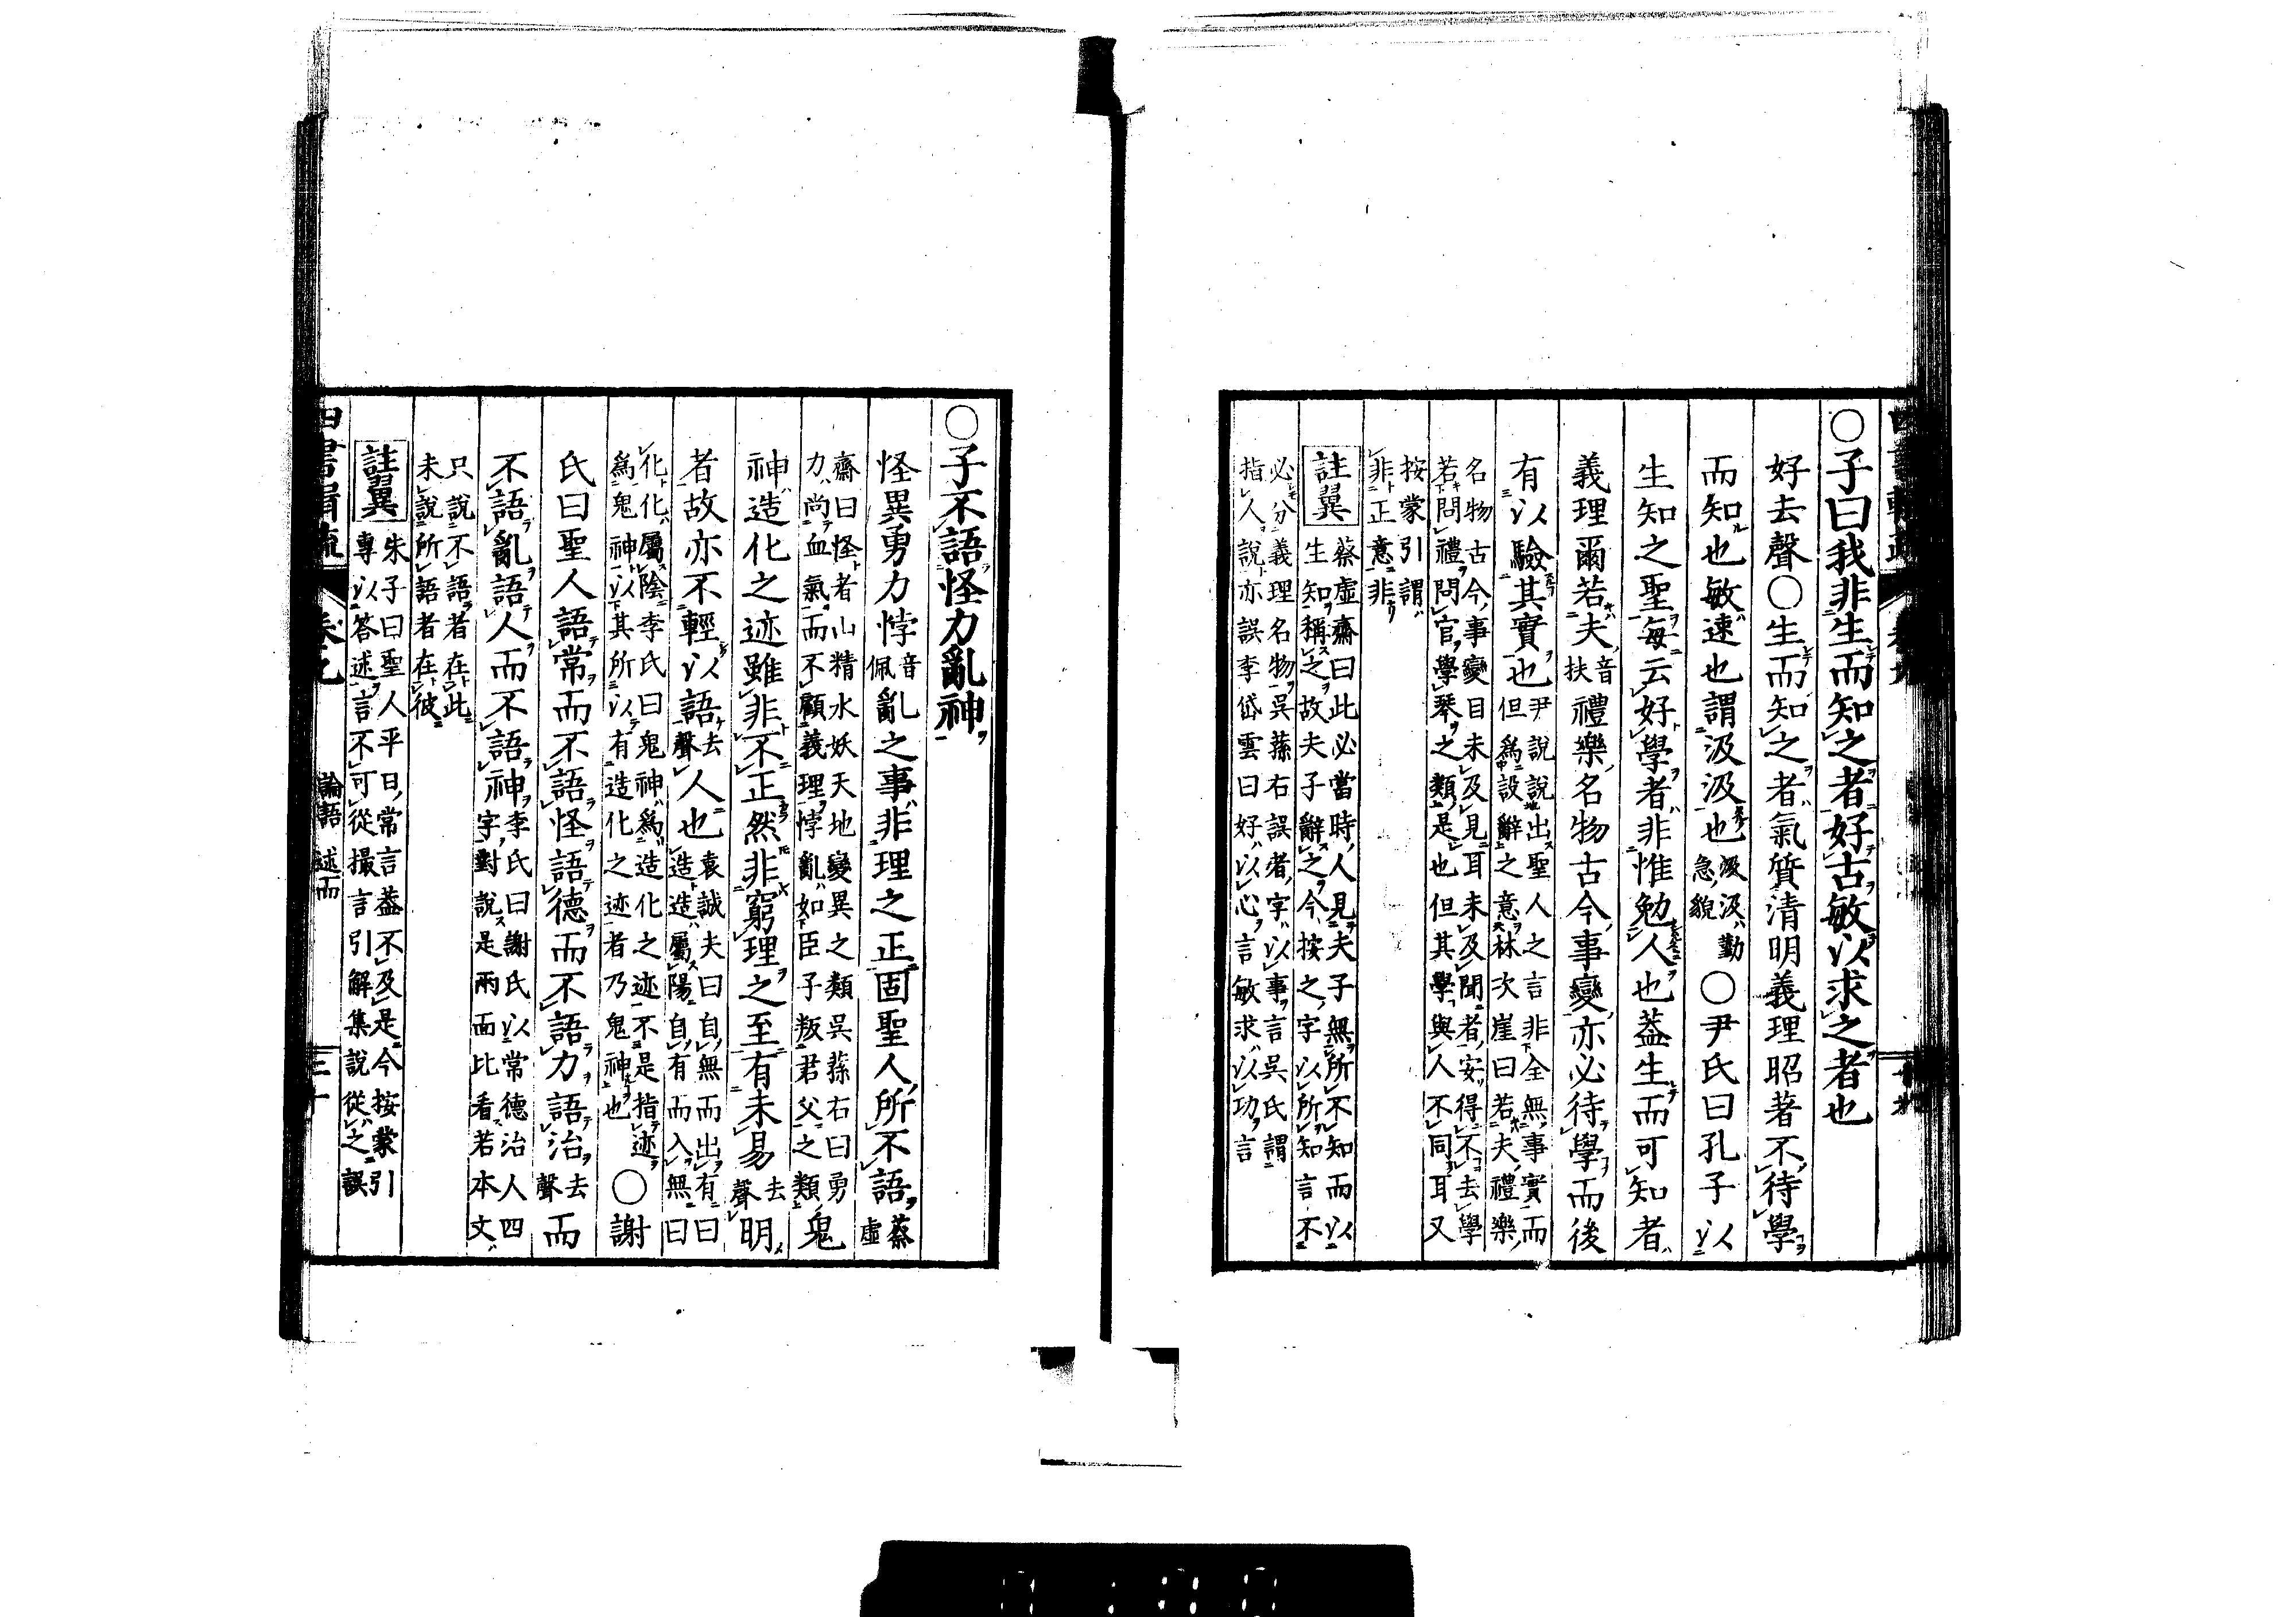 ○子曰我非生而知之者好古敏以求之者也
好去聲○生而知之者氣質清明義理昭著不待學
而知也敏速也謂汲汲也汲汲勤
急貌○尹氏曰孔子以
生知之聖每云好學者非惟勉人也蓋生而可知者
義理爾若夫音
扶禮樂名物古今事變亦必待學而後
有以驗其實也尹說說出聖人之言非全無事實而
但為設辭之意林次崖曰若夫禮樂
名物古今事變目未及見耳未及聞者安得不去學
若問禮問官學琴之類是也但其學與人不同耳又
按蒙引謂
非正意非
註翼
蔡虛齋曰此必當時人見夫子無所不知而以
生知稱之故夫子辭之今按之字以所知言不
必分義理名物吳蓀右誤者字以事言吳氏謂
指人說亦誤李岱雲曰好以心言敏求以功言
○子不語怪力亂神
怪異勇力悖音
佩亂之事非理之正固聖人所不語蔡
虛
齋曰怪者山精水妖天地變異之類吳蓀右曰勇
力尚血氣而不顧義理悖亂如臣子叛君父之類鬼
神造化之迹雖非不正然非窮理之至有未易去
聲明
者故亦不輕以語去
聲人也袁誠夫曰自無而出有曰
造造屬陽自有而入無曰
化化屬陰李氏曰鬼神為造化之迹不是指迹
為鬼神以其所以有造化之迹者乃鬼神也○謝
氏曰聖人語常而不語怪語德而不語力語治去
聲而
不語亂語人而不語神李氏曰謝氏以常德治人四
字對說是兩面比看若本文
只說不語者在此
未說所語者在彼
註翼
朱子曰聖人平日常言蓋不及是今按蒙引
專以答述言不可從撮言引解集說從之誤
四書
卷九
論語 述而
三十